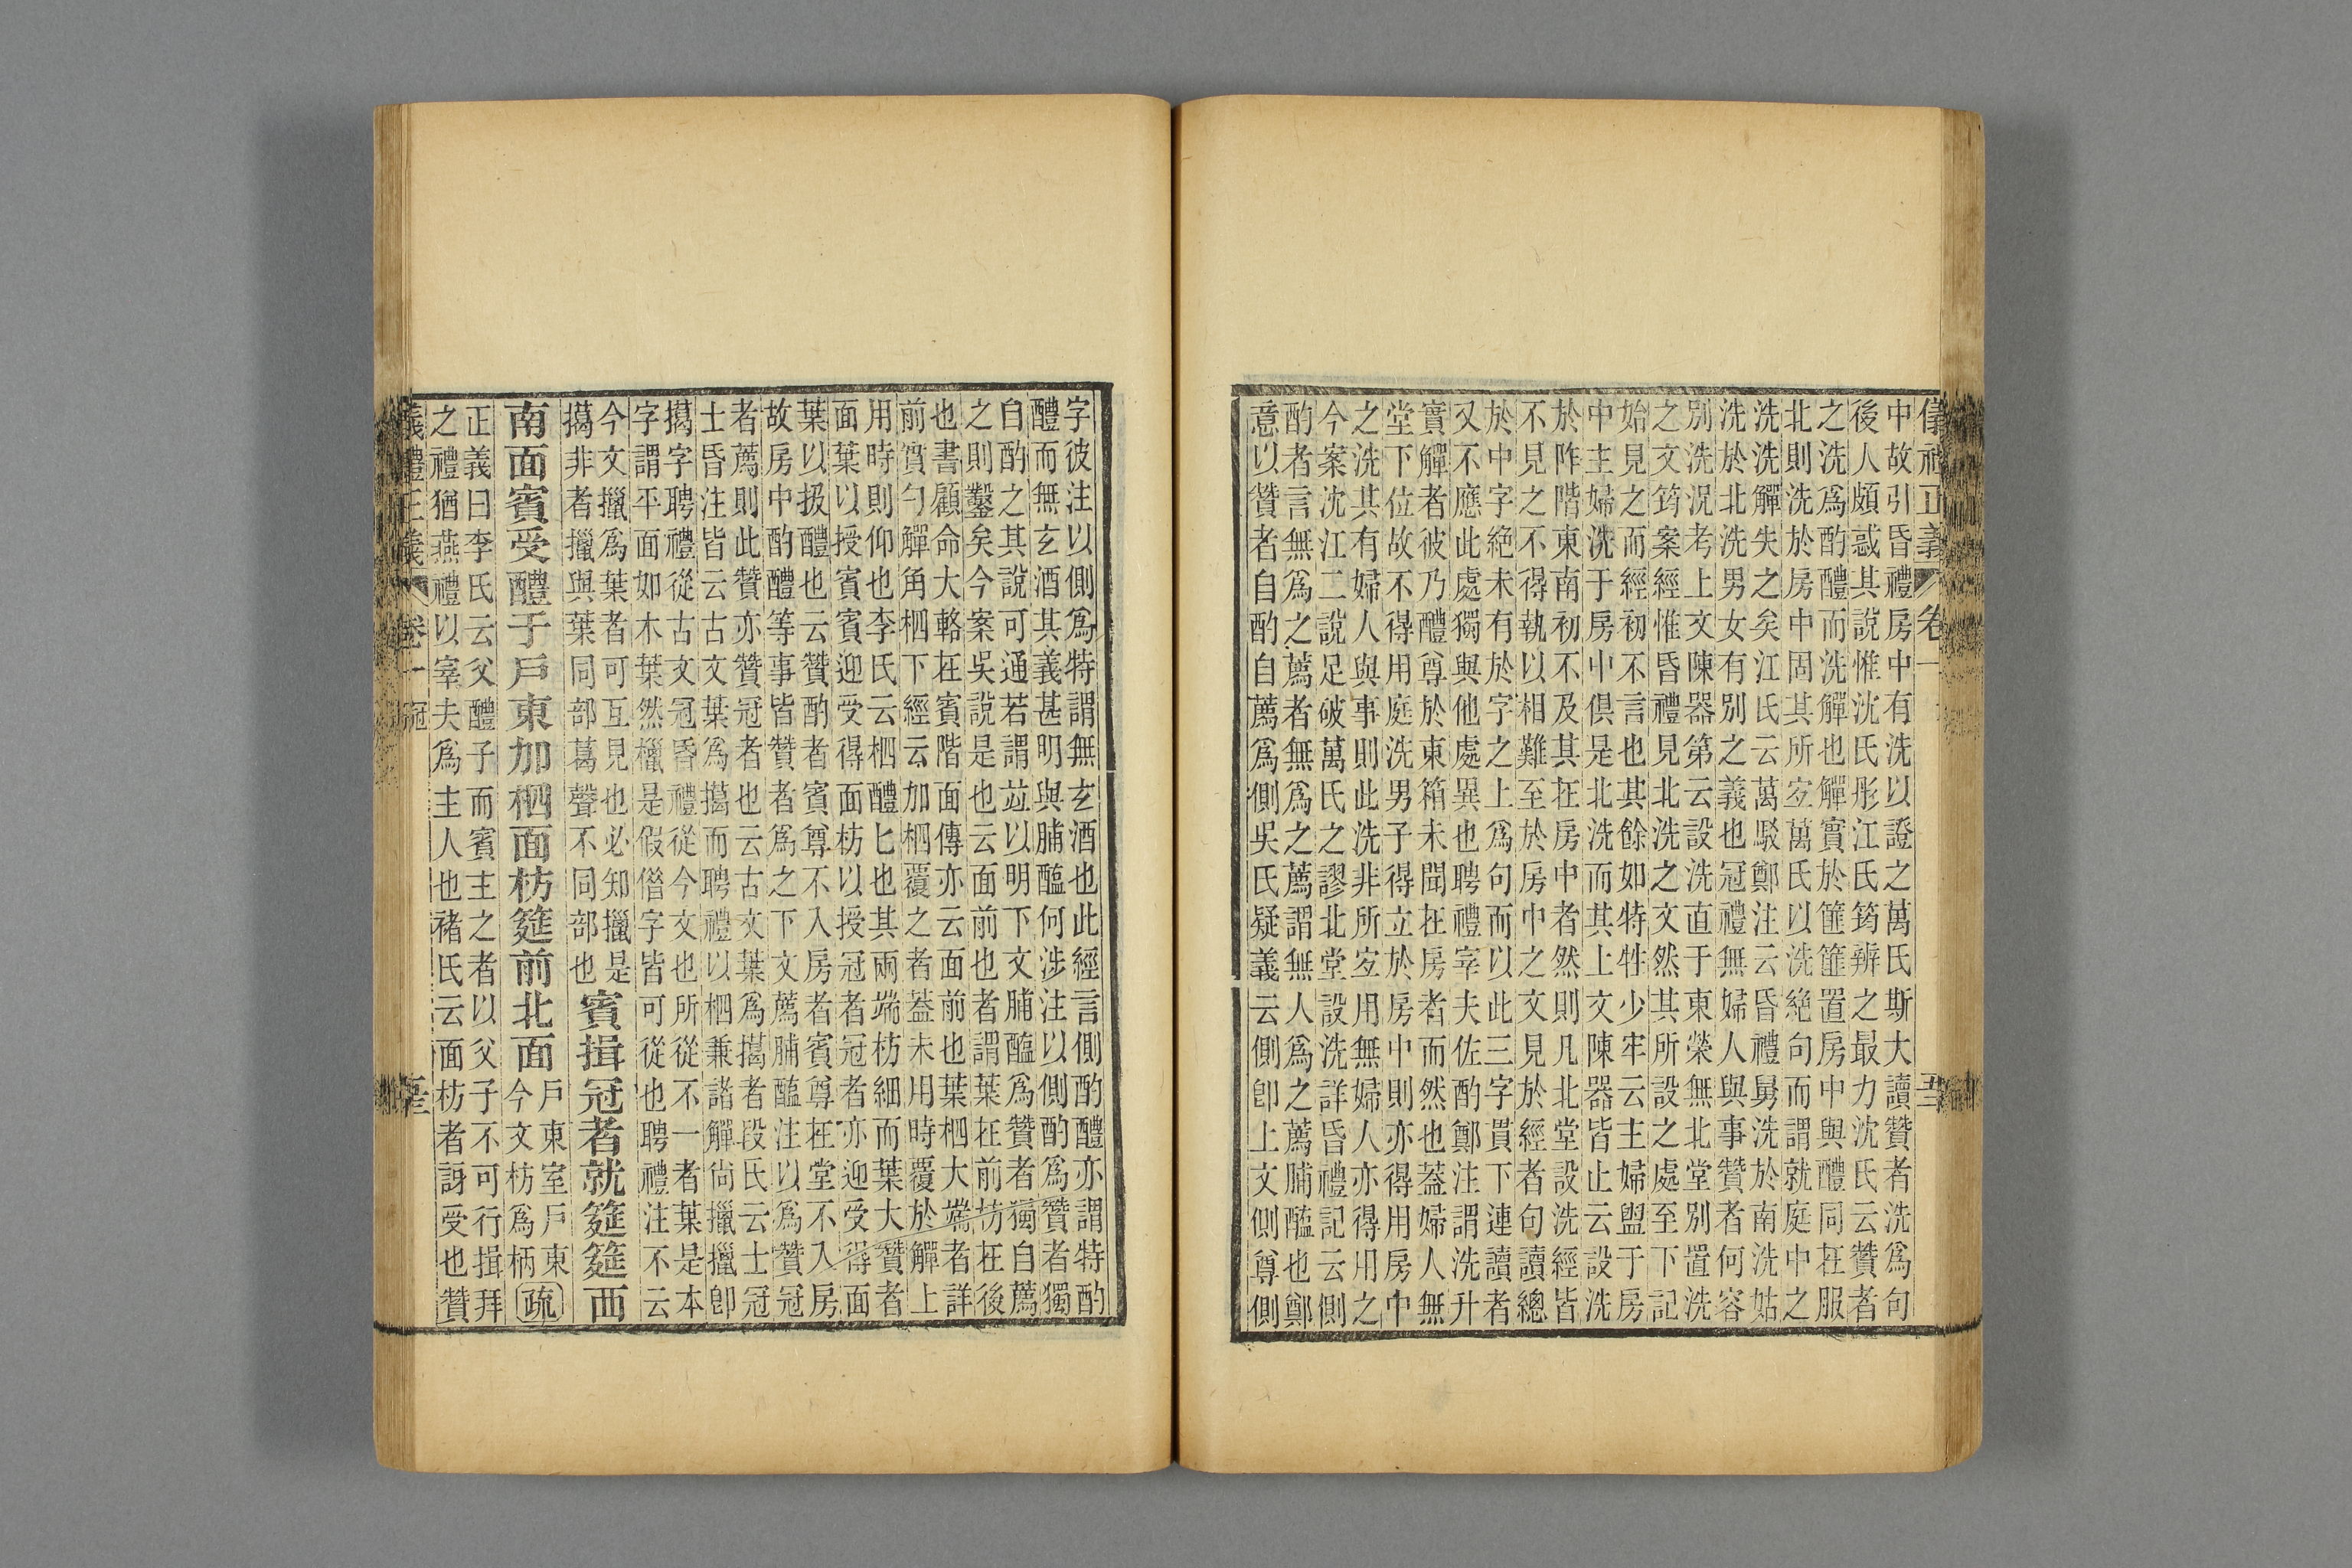 儀禮正義 卷一
中故引昏禮房中有洗以證之萬氏斯大讀贊者洗爲句
後人頗惑其說惟沈氏彤江氏筠辨之最力沈氏云贊者
之洗爲酌醴而洗觶也觶實於篚篚置房中與醴同在服
北則洗於房中固其所宜萬氏以洗絶句而謂就庭中之
洗洗觶失之矣江氏云萬駁鄭注云昏禮舅洗於南洗姑
洗於北洗男女有別之義也冠禮無婦人與事贊者何容
別洗況考上文陳器第云設洗直于東榮無北堂別置洗
之文筠案經惟昏禮見北洗之文然其所設之處至下記
始見之而經初不言也其餘如特牲少牢云主婦盥于房
中主婦洗于房中俱是北洗而其上文陳器皆止云設洗
於阼階東南初不及其在房中者然則凡北堂設洗經皆
不見之不得執以相難至於房中之文見於經者句讀總
於中字絶未有於字之上爲句而以此三字貫下連讀者
又不應此處獨與他處異也聘禮宰夫佐酌鄭注謂洗升
實觶者彼乃醴尊於東箱未聞在房者而然也蓋婦人無
堂下位故不得用庭洗男子得立於房中則亦得用房中
之洗其有婦人與事則此洗非所宜用無婦人亦得用之
今案沈江二說足破萬氏之謬北堂設洗詳昏禮記云側
酌者言無爲之薦者無爲之薦謂無人爲之薦脯醢也鄭
意以贊者自酌自薦爲側吳氏疑義云側卽上文側尊側
字彼注以側爲特謂無玄酒也此經言側酌醴亦謂特酌
醴而無玄酒其義甚明與脯醢何涉注以側酌爲贊者獨
自酌之其說可通若謂竝以明下文脯醢爲贊者獨自薦
之則鑿矣今案吳說是也云面前也者謂葉在前枋在後
也書顧命大輅在賓階面傳亦云面前也葉柶大端者詳
前實勺觶角柶下經云加柶覆之者蓋未用時覆於觶上
用時則仰也李氏云柶醴匕也其兩端枋細而葉大贊者
面葉以授賓賓迎受得面枋以授冠者冠者亦迎受得面
葉以扱醴也云贊酌者賓尊不入房者賓尊在堂不入房
故房中酌醴等事皆贊者爲之下文薦脯醢注以爲贊冠
者薦則此贊亦贊冠者也云古文葉爲擖者段氏云士冠
士昏注皆云古文葉爲擖而聘禮以柶兼諸觶尚擸擸卽
擖字聘禮從古文冠昏禮從今文也所從不一者葉是本
字謂平面如木葉然擸是假借字皆可從也聘禮注不云
今文擸爲葉者可互見也必知擸是
擖非者擸與葉同部葛聲不同部也
賓揖冠者就筵筵西
南面賓受醴于戶東加柶面枋筵前北面
戶東室戶東
今文枋爲柄
疏
正義曰李氏云父醴子而賓主之者以父子不可行揖拜
之禮猶燕禮以宰夫爲主人也褚氏云面枋者訝受也贊
儀禮正義 卷一 冠